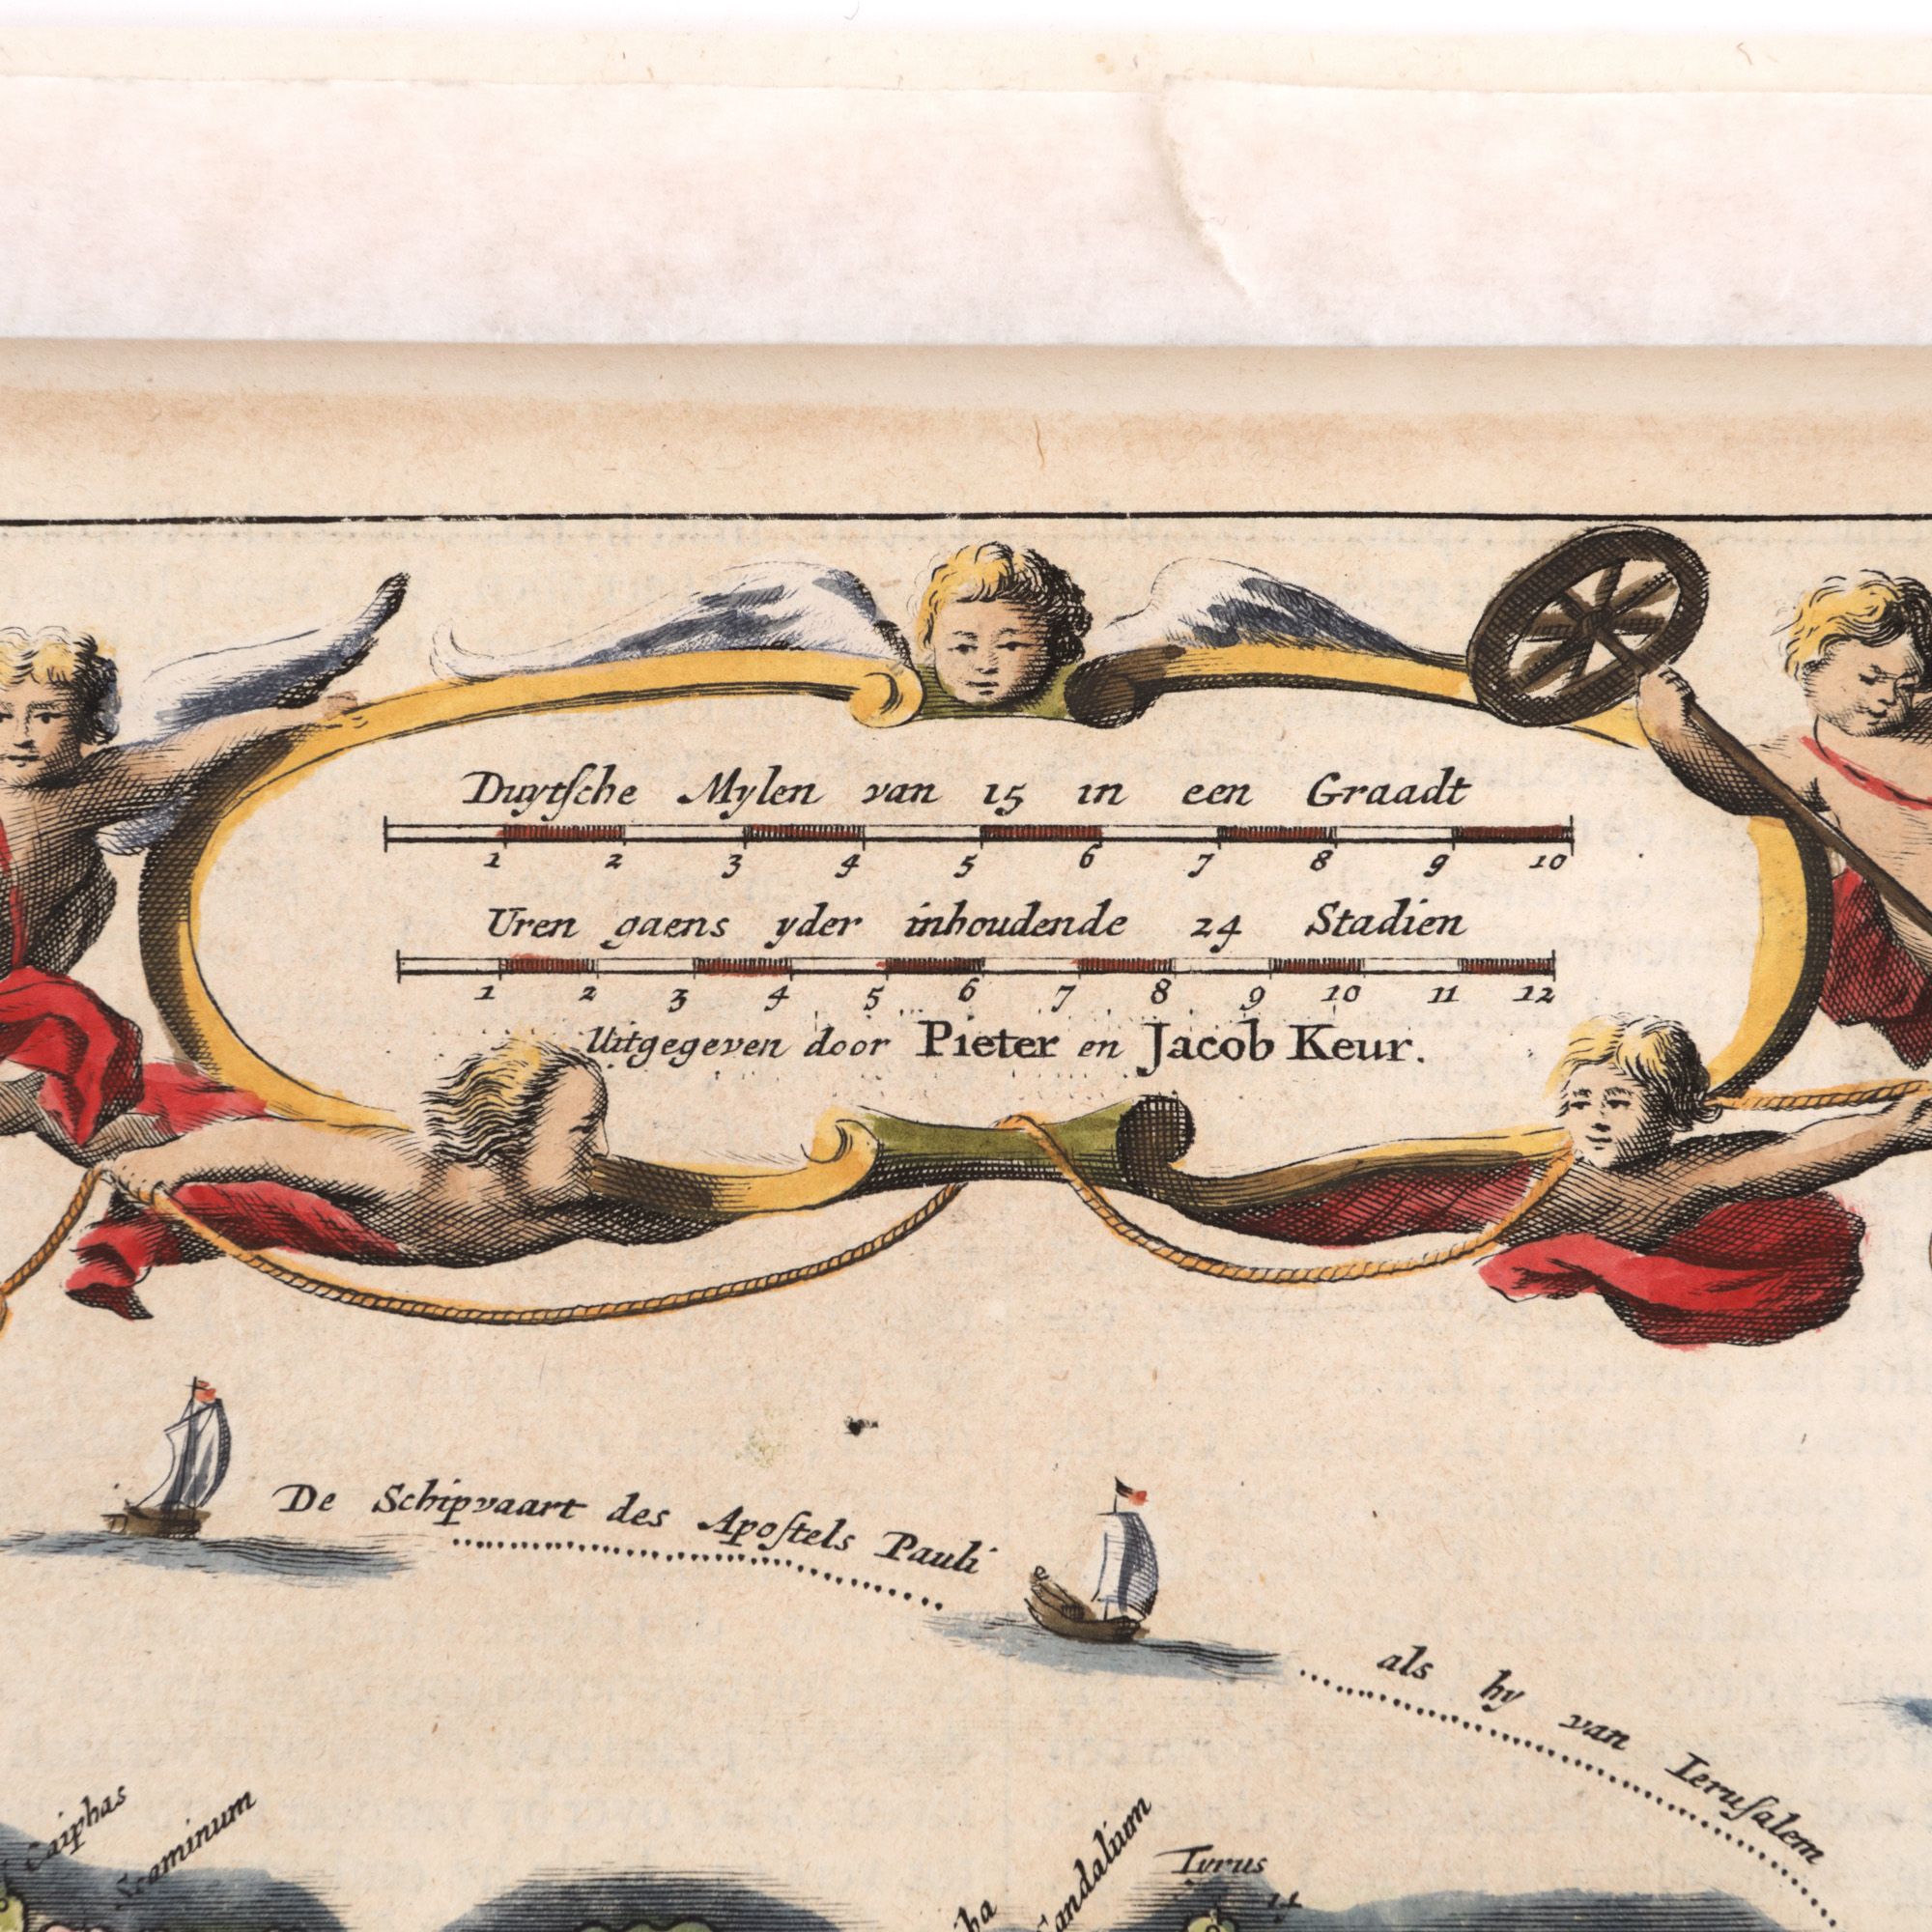 Duytſche Mylen van 15 in een Graadt
1 2 3 4 5 6 7 8 9 10
Uren gaens yder inhoudende 24 Stadien
1 2 3 4 5 6 7 8 9 10 11 12
Uitgegeven door Pieter en Jacob Keur.
De Schipvaart des Apoſtels Pauli
als hy van Ieruſalem
Caiphas
Tyrus